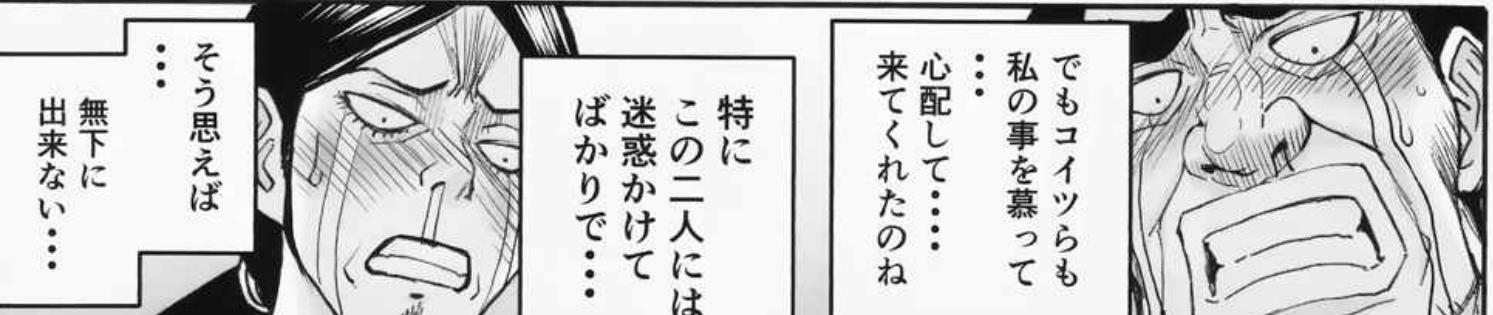 でもコイツらも
私の事を慕って
・・・
心配して・・・・
来てくれたのね
特に
この二人には
迷惑かけて
ばかりで・・・
そう思えば
・・・
無下に
出来ない・・・